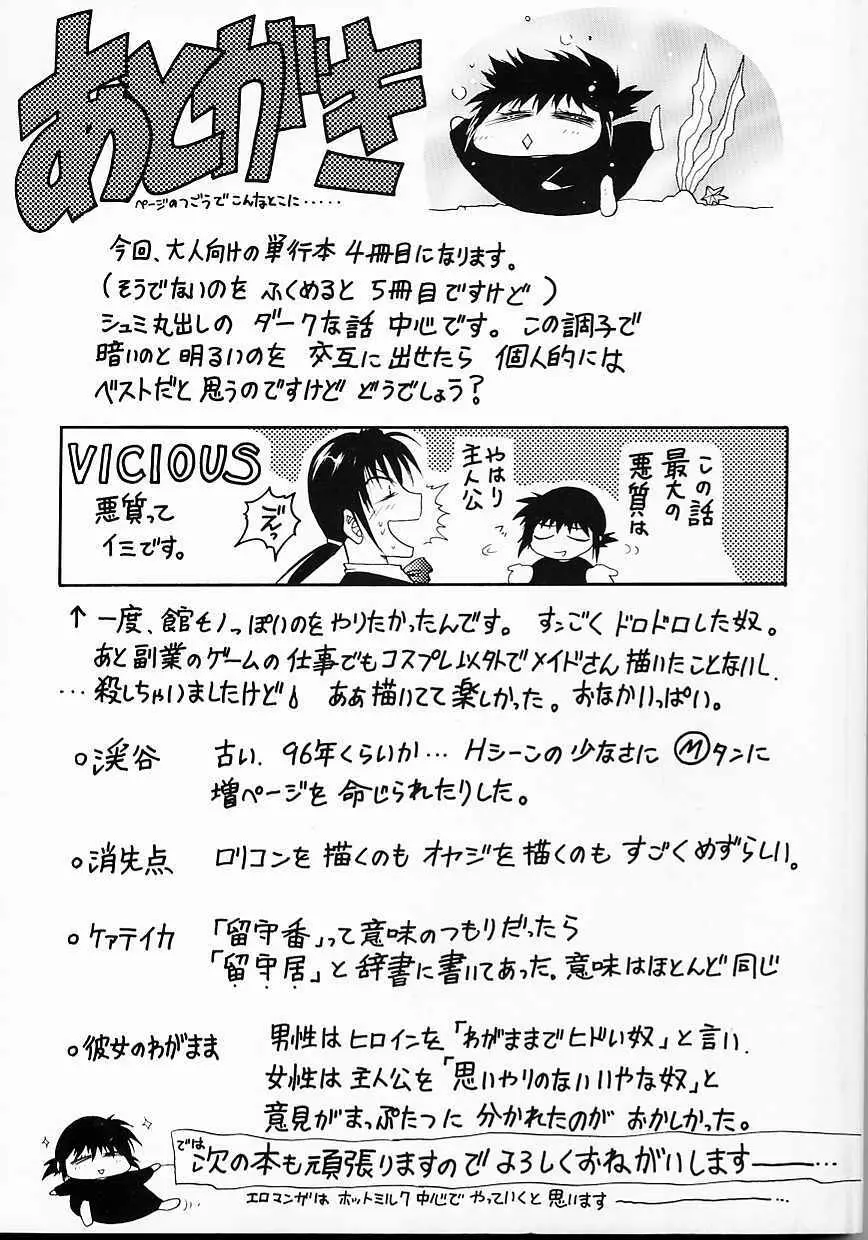 あとがき
ページのつごうで こんなとこに・・・・・
今回、大人向けの単行本 4冊目になります。
(そうでないのを ふくめると 5冊目ですけど)
シュミ丸出しの ダークな話 中心です。 この調子で
暗いのと 明るいのを 交互に出せたら 個人的には
ベストだと 思うのですけど どうでしょう?
VICIOUS
悪質って
イミです。
この話
最大の
悪質は
やはり
主人公
ぞえっ
↑ 一度、館モノっぽいのをやりたかったんです。 すンごく ドロドロした奴。
あと副業のゲームの仕事でもコスプレ以外でメイドさん描いたことないし
…殺しちゃいましたけど ああ描いてて 楽しかった。おなかいっぱい。
○渓谷 古い. 96年くらいか… Hシーンの少なさに Ⓜタンに
増ページを 命じられたりした。
○消失点 ロリコンを 描くのも オヤジを描くのも すごくめずらしい。
○ケァテイカ 「留守番」って意味のつもりだったら
「留守居」と辞書に書いてあった。意味はほとんど同じ
○彼女のわがまま 男性はヒロインを「わがままでヒドい奴」と言い.
女性は主人公を「思いやりのないいやな奴」と
意見がまっぷたつに 分かれたのが おかしかった。
では
次の本も頑張りますので よろしくおねがいします――…
エロマンガは ホットミルク中心で やっていくと 思います――…